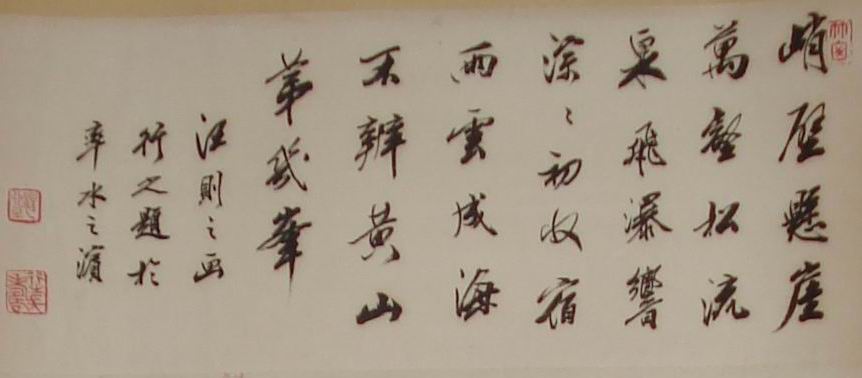 峭壁懸崖
萬壑松流
泉飛瀑響
深〻初收宿
雨雲成海
不辨黃山
第幾峯
汪則之画
行之題於
率水之濱